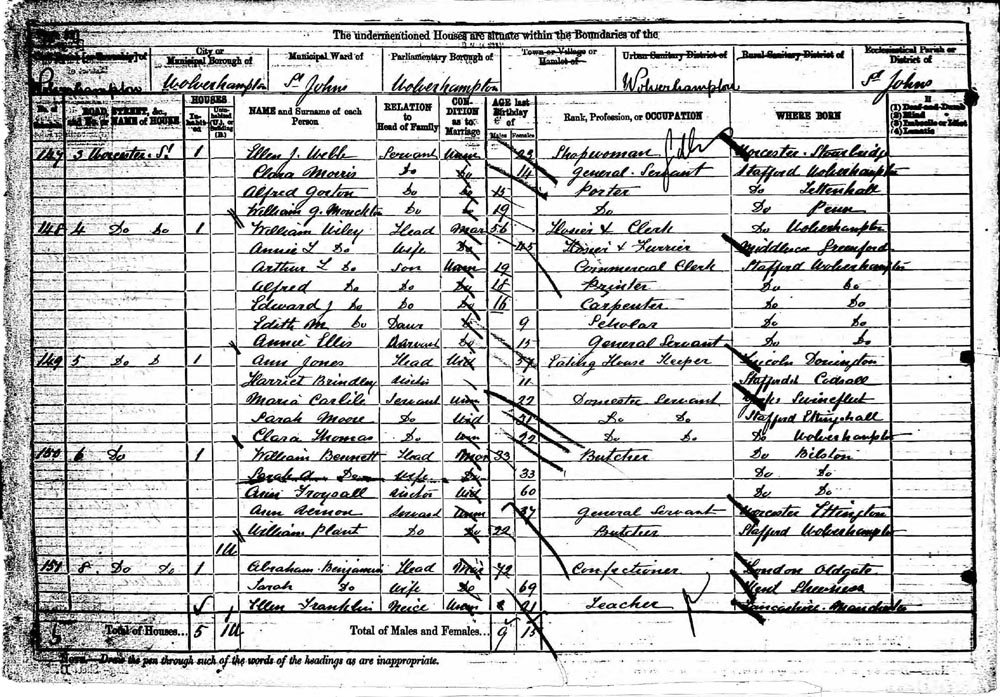 The undermentioned Houses are situate within the Boundaries of the
City or Municipal Borough of Municipal Ward of Parliamentary Borough of Town or Village or Hamlet of Urban Sanitary District of Rural Sanitary District of Ecclesiastical Parish or District of
Wolverhampton Wolverhampton St Johns Wolverhampton Wolverhampton St Johns
ROAD, STREET, &c., and No. or NAME of HOUSE HOUSES Inhabited Uninhabited (U.), or Building (B.) NAME and Surname of each Person RELATION to Head of Family CONDITION as to Marriage AGE last Birthday of Males Females Rank, Profession, or OCCUPATION WHERE BORN If (1) Deaf-and-Dumb (2) Blind (3) Imbecile or Idiot (4) Lunatic
147 3 Worcester St 1 Ellen J. Webb Servant Unm 22 Shopwoman Worcester Stourbridge
Clara Morris Do Do 14 General Servant Stafford Wolverhampton
Alfred Gorton Do Do Porter Do Tettenhall
William G. Monckton Do Do 19 Do Do Penn
148 4 Do Do 1 William Wiley Head Mar 56 Hosier & Clerk Do Wolverhampton
Annie L Do Wife Do 45 Hosier & Furrier Middlesex Greenford
Arthur L Do Son Unm 19 Commercial Clerk Stafford Wolverhampton
Alfred Do Do Do Printer Do Do
Edward J Do Do Do 16 Carpenter Do Do
Edith M Do Daur Do 9 Scholar Do Do
Annie Ellis Servant Do 15 General Servant Do Do
149 5 Do Do 1 Ann Jones Head Wid 57 Eating House Keeper Lincoln
Harriet Brindley Visitor 11 Staffords Codsall
Maria Carlile Servant Unm 22 Domestic Servant Yorks Swinefleet
Sarah Moore Do Wid Do Do Stafford Ettingshall
Clara Thomas Do Unm 22 Do Do Do Wolverhampton
150 6 Do 1 William Bennett Head Mar 33 Butcher Do Bilston
Sarah A Do Wife Do 33 Do Do
Ann Visitor Wid 60 Do Do
Ann Vernon Servant Unm 27 General Servant Worcester
William Plant Do Do 22 Butcher Stafford Wolverhampton
1U
151 8 Do Do 1 Abraham Benjamin Head Mar 72 Confectioner London Oldgate
Sarah Do Wife Do 69 Kent Sheerness
Ellen Franklin Neice Unm 21 Teacher Lancashire Manchester
5 Total of Houses... 5 1U Total of Males and Females... 9 15
NOTE.—Draw the pen through such of the words of the headings as are inappropriate.